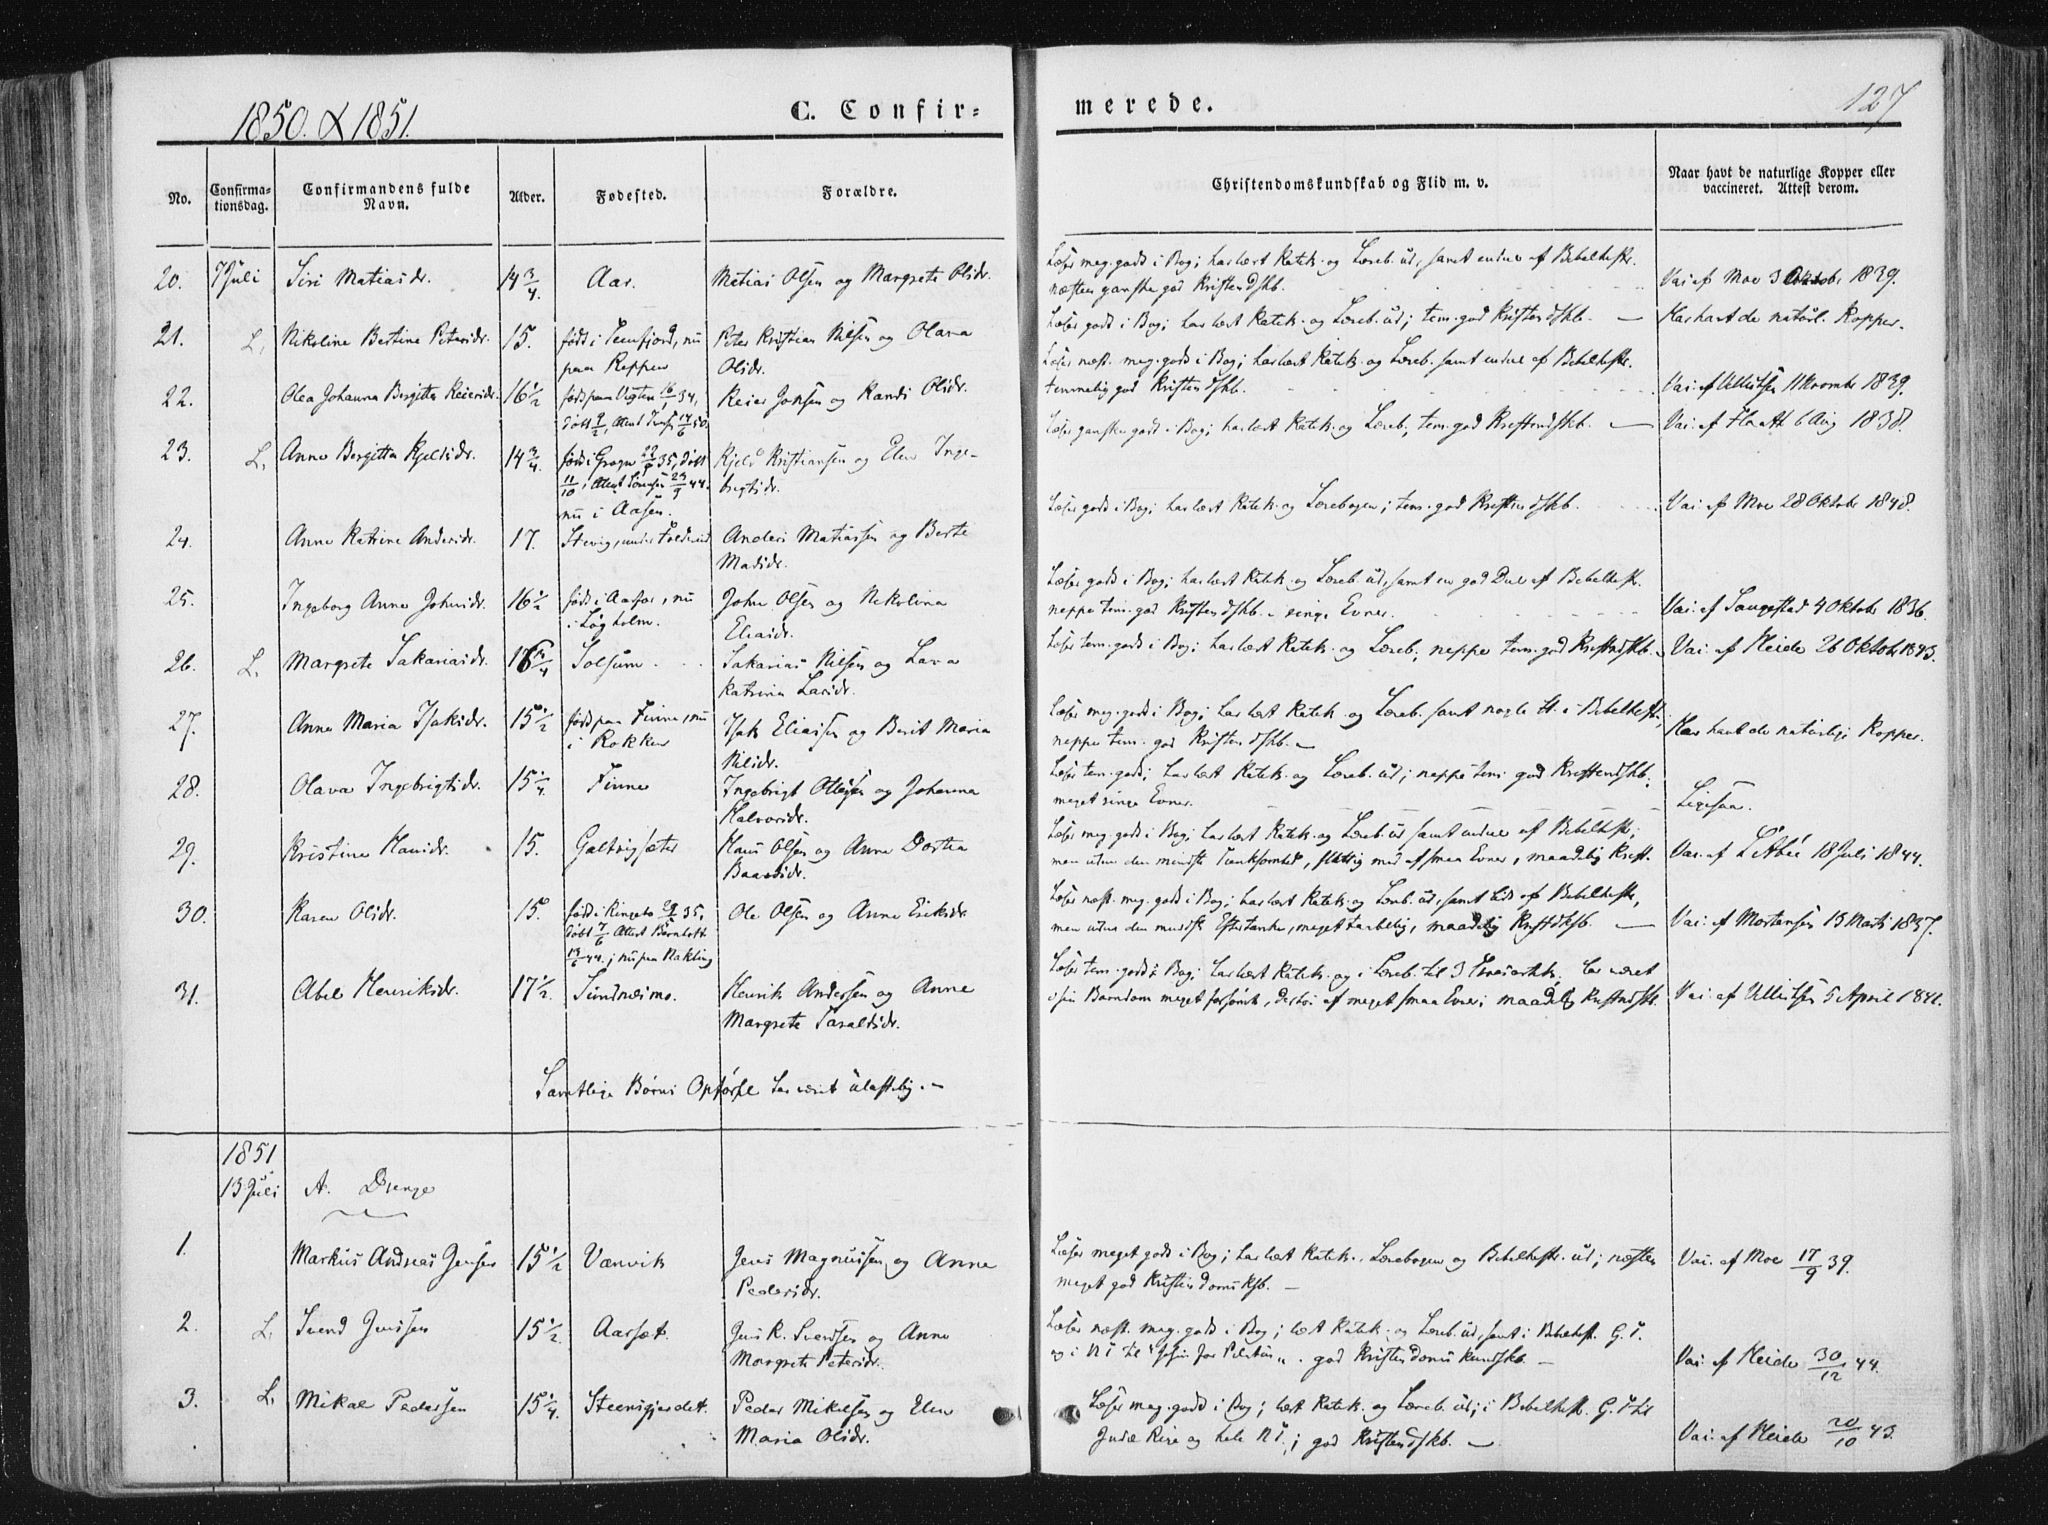 1850. & 1851.
C. Confir=
merede.
127
No.
Confirma-
tionsdag.
Confirmandens fulde
Navn.
Alder.
Fødested.
Forældre.
Christendomskundskab og Flid m. v.
Naar havt de naturlige Kopper eller
vaccineret. Attest derom.
20. 7 Juli Siri Matiasdr. 14 3/4. Aar. Matias Olsen og Margrete Olsdr.
Læser meg. godt i Bog; har lært Katek. og Læreb. ud, samt endel af Bibelhist.
næsten ganske god Kristendskb.
Vac. af Moe 3 Oktobr 1839.
21. L. Nikoline Bertine Petersdr. 15. født i Temfjord, nu
paa Reppen
Peter Kristian Nilsen og Olava
Olsdr.
Læser godt i Bog; har lært Katek. og Læreb. ud; tem. god Kristendskb. —
Har havt de naturl. Kopper.
22. Olea Johanna Bergitta Reiersdr. 16 1/2 født paa Vigten 16/1 34,
døbt 9/2, Attest 14/6 50.
Reier Jonsen og Randi Olsdr.
Læser næst. meg. godt i Bog; har lært Katek. og Læreb. samt endel af Bibelhist.
temmelig god Kristendskb.
Vac. af Ulrichsen 11 Novembr 1839.
23. L. Anne Bergitta Kjelsdr. 14 3/4. født i Grogn 22/9 35, døbt
11/10, Attest Sørensen 23/9 44.
nu i Aasen.
Kjeld Kristiansen og Elen Inge-
brigtsdr.
Læser ganske godt i Bog; har lært Katek. og Læreb; tem. god Kristendskb. —
Vac. af Flaatt 6 Aug 1838.
24. Anne Katrine Andersdr. 17. Stevig, under Foldereid
Anders Matiassen og Berte
Madsdr.
Læser godt i Bog; har lært Katek. og Lærebogen; tem. god Kristendskb.
Vac. af Moe 28 Oktobr 1848.
25. Ingeborg Anne Johnsdr. 16 1/2 født i Aasfor, nu
i Løgholm.
John Olsen og Nikolina
Eliasdr.
Læser godt i Bog; har lært Katek. og Læreb. ud, samt en god Del af Bibelhist.
neppe tem. god Kristendskb. - ringe Evner.
Vac. af Saugestad 4 Oktobr 1836.
26. L. Margrete Sakariasdr. 16 3/4 Solsum. Sakarias Nilsen og Lava
Katrina Larsdr.
Læser tem. godt i Bog; har lært Katek. og Læreb; neppe tem. god Kristendskb.
Vac. af Heide 26 Oktobr 1843.
27. Anne Maria Isaksdr. 15 1/2 født paa Finne, nu
i Rokken
Isak Eliassen og Berit Maria
Nilsdr.
Læser meg. godt i Bog; har lært Katek. og Læreb. samt nogle St. i Bibelhist;
neppe tem. god Kristendskb. —
Har havt de naturlige Kopper.
28. Olava Ingebrigtsdr. 15 1/4. Finne Ingebrigt Ottesen og Johanna
Halvorsdr.
Læser tem. godt; har lært Katek. og Læreb. ud; neppe tem. god Kristendskb;
meget ringe Evner.
Ligesaa.
29. Kristine Hansdr. 15. Galtvigsæter Hans Olsen og Anne Dortea
Baarsdr.
Læser meg. godt i Bog; har lært Katek. og Læreb. ud samt endel af Bibelhist;
men uten den mindste Tænksomhed, flittig med af smaa Evner, maadelig Krist.
Vac. af 18 Juli 1844.
30. Karen Olsdr. 15. født i Ringebo 29/5 35,
døbt 7/6 Attest Barnholdt
13/6 44.; nu paa Nakling
Ole Olsen og Anne Eriksdr
Læser næst. meg. godt i Bog; har lært Katek. og Læreb. ud, samt lidt af Bibelhist,
men uten den mindste Eftertanke, meget tarvelig, maadelig Kristdksb. —
Vac. af Mortensen 13 Marts 1837.
31. Abel Henriksdr. 17 1/2. Sundnæsmo. Henrik Andersen og Anne
Margrete Taraldsdr.
Læser tem. godt i Bog; har lært Katek. og i Læreb. til 3 Troesartik; har været
i sin Barndom meget forsømt, derhos af meget smaa Evner; maadelig Kristendskb.
Vac. af Ullrichsen 5 April 1841.
Samtlige Børns Opførsel har været ulastelig. —
1851
13 Juli A. Drenge
1. Markus Andreas Jensen 15 1/2 Vænvik Jens Magnussen og Anne
Pedersdr.
Læser meget godt i Bog; har lært Katek. Lærebogen og Bibelhistr. ud; næsten
meget god Kristendomsksb. —
Vac. af Moe 17/9 39.
2. L. Svend Jenssen 15 1/2. Aarsæt. Jens K. Svendsen og Anne
Margrete Petersdr.
Læser næst. meg. godt i Bog; lært Katek. og Læreb. ud, samt i Bibelhist. G. T.
og i N T til "Jesus for Pilatus". god Kristendomskundskb. —
Vac. af Heide 30/12 44.
3. L. Mikal Pedersen 15 1/4. Steensgjerdet. Peder Mikelsen og Elen
Maria Olsdr.
Læser meg. godt i Bog; lært Katek. og Læreb. ud; i Bibelhist. G. T til
Judæ Rige og hele N T.; god Kristendskb. —
Vac. af Heide 20/10 43.